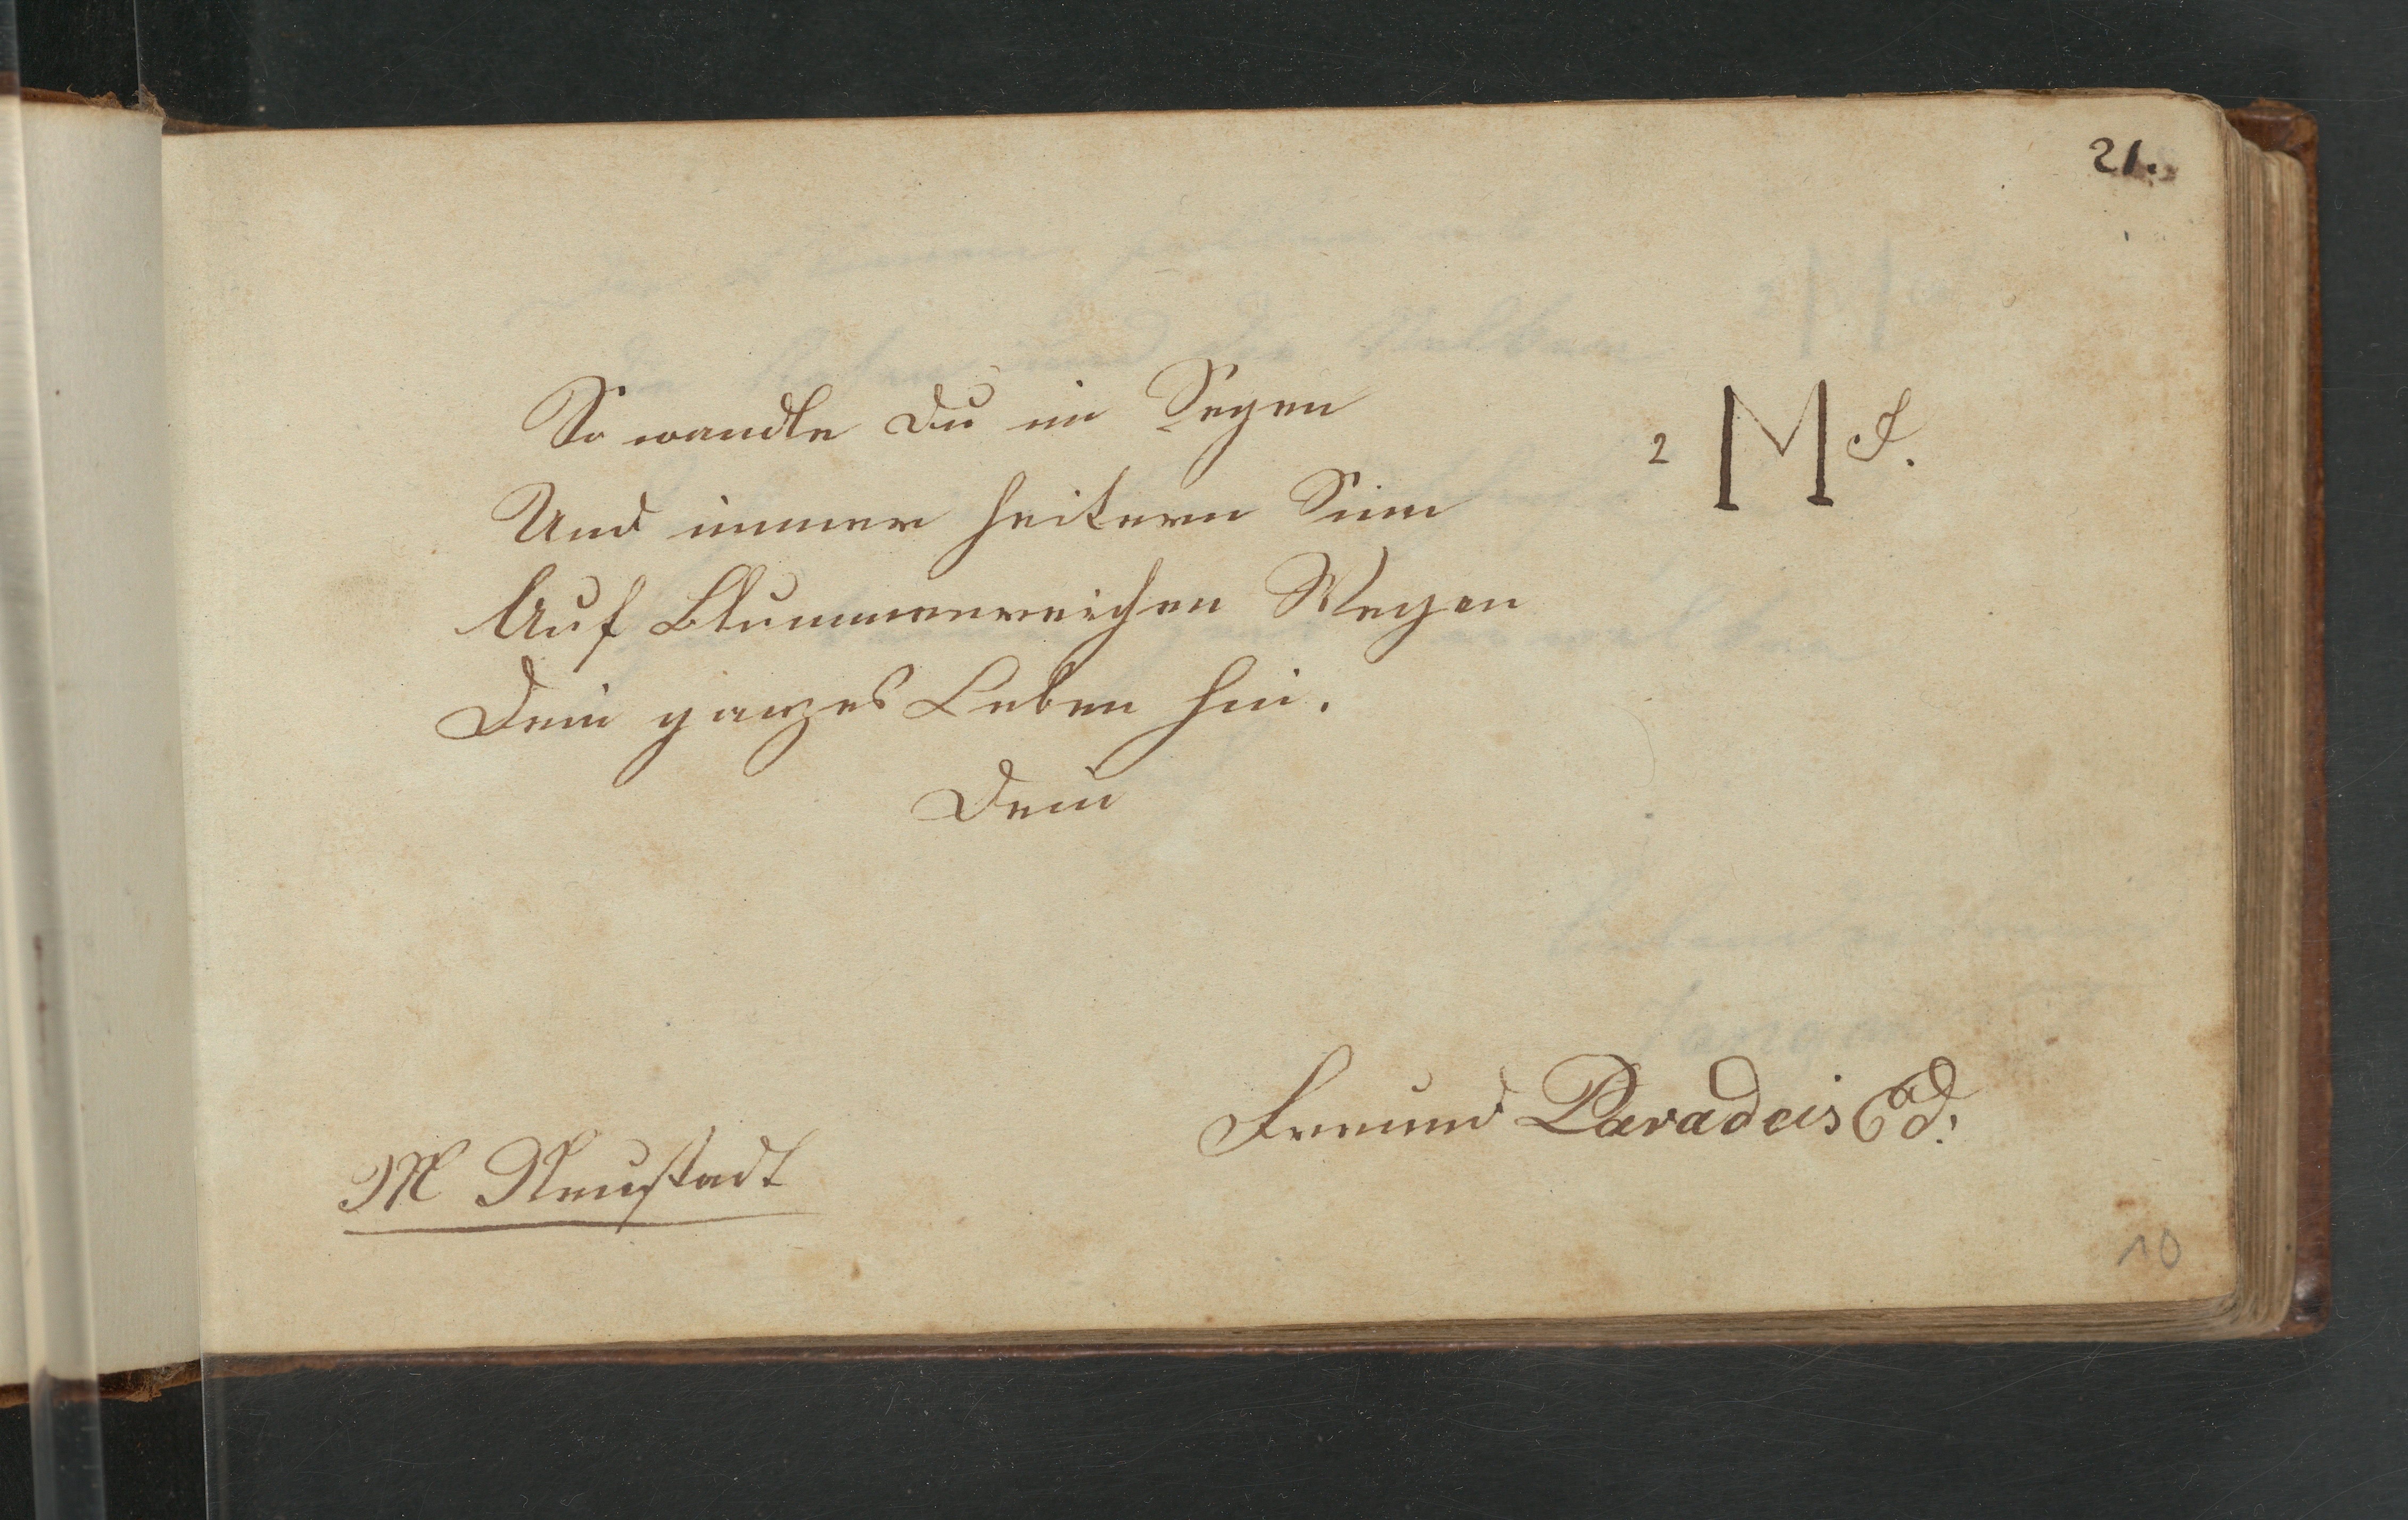 21.
So wandle Du im Segen
2 M J.
Und immer heitern Sinn
Auf Blummenreichen Wegen
Dein ganzes Leben hin.
Dein
Freund Paradeis Ed.
M Neustadt
10